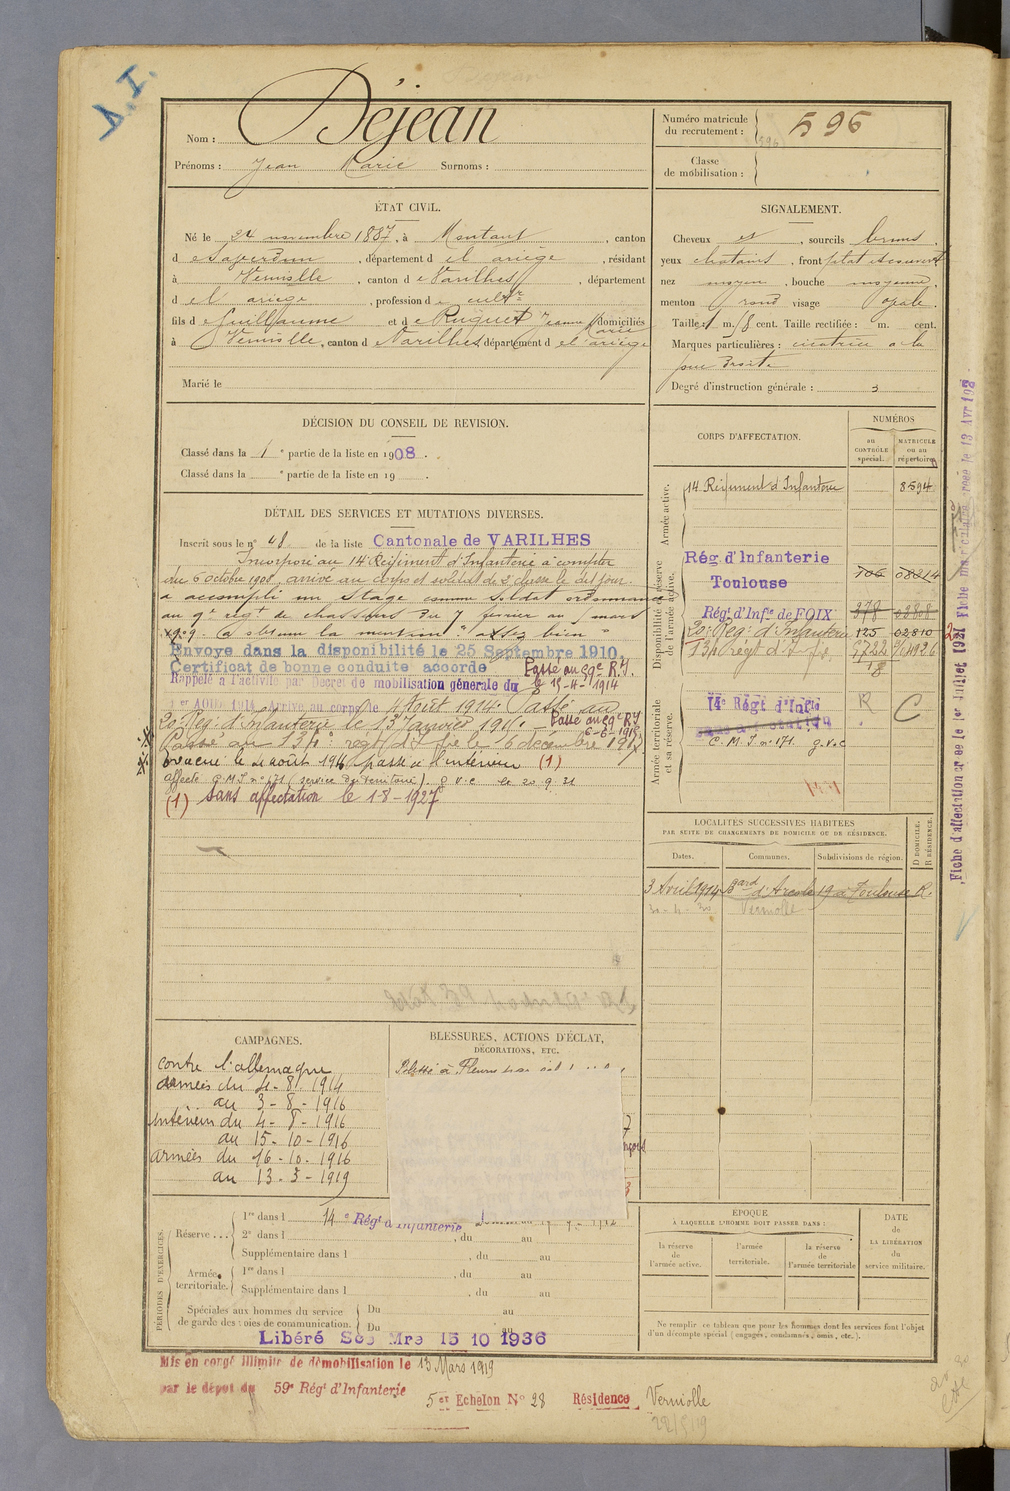 Nom : Déjean
Prénoms : Jean Marie Surnoms :
Numéro matricule
du recrutement : 596
Classe
de mobilisation :
ÉTAT CIVIL.
Né le 24 novembre 1887, à Montaut, canton
d e Saverdun, département d el ariège, résidant
à Verniolle, canton d e Varilhes, département
d el ariège, profession d e cultr
fils d e Guillaume et d e Ruquet Jeanne Marie domiciliés
à Verniolle, canton d e Varilhes, département d el ariège
Marié le
SIGNALEMENT.
Cheveux et, sourcils bruns,
yeux chatains, front plat et couvert
nez moyen, bouche moyenne,
menton rond visage ovale.
Taille 1 m. 78 cent. Taille rectifiée : m. cent.
Marques particulières : cicatrice a la
joue droite
Degré d'instruction générale : 3
DÉCISION DU CONSEIL DE REVISION.
Classé dans la 1e partie de la liste en 1908.
Classé dans la e partie de la liste en 19
DÉTAIL DES SERVICES ET MUTATIONS DIVERSES.
Inscrit sous le no 48 de la liste Cantonale de VARILHES
Incorporé au 14e Régiment d'Infanterie à compter
du 6 octobre 1908, arrivé au corps et soldat de 2e classe le dit jour.
a accompli un stage comme soldat ordonnance
au 9e régt de chasseurs du 7 février au mars
1909. a obtenu la mention "assez bien"
Envoyé dans la disponibilité le 25 Septembre 1910.
Certificat de bonne conduite accordé
Passé au 59e R.I.
le 15-4-1914
Rappelé à l'activité par Décret de mobilisation générale du
1er AOUT 1914 Arrivé au corps le 4 Août 1914. Passé au
20e Rég. d'Infanterie le 13 Janvier 191
Passé au 59e RI
6-6-1915
Passé au 134e régt d'I le 16 décembre 1917
évacué le 4 août 1916 passé à l'intérieur (1)
affecté C.M.I no 171 (service du territoire). G.V.C. le 20.9.21
(1) Sans affectation le 1-8-1927
CORPS D'AFFECTATION.
NUMÉROS
au
CONTRÔLE
spécial.
MATRICULE
ou au
répertoire
Armée active.
14 Régiment d'Infanterie 8594
Disponibilité et réserve
de l'armée active.
Rég. d'Infanterie
Toulouse 08214
Régt d'Infie de FOIX 378 02808
20e Rég. d'Infanterie 125 02810
134 régt d'I 5722
Armée territoriale
et sa réserve.
14e Régt d'Infie
C.M.I no 171. G.V.C
R
C
LOCALITÉS SUCCESSIVES HABITÉES
PAR SUITE DE CHANGEMENTS DE DOMICILE OU DE RÉSIDENCE.
Dates. Communes. Subdivisions de région.
D DOMICILE.
R RÉSIDENCE.
3 Avril 1914 Bard d'Arcole 19 à Toulouse R.
Verniolle
Fiche d'affectation créée le 1er Juillet 1921 Fiche matriculaire créée le 13 Avr 192
CAMPAGNES.
contre l'allemagne
armées du 4-8-1914
au 3-8-1916
Intérieur du 4-8-1916
au 15-10-1916
armées du 16-10-1916
au 13-3-1919
BLESSURES, ACTIONS D'ÉCLAT,
DÉCORATIONS, ETC.
Blessé à Fleury
PÉRIODES D'EXERCICES.
Réserve...
1re dans l 14e Régt d'Infanterie
2e dans l , du au
Supplémentaire dans l , du au
Armée
territoriale.
1re dans l , du au
Supplémentaire dans l , du au
Spéciales aux hommes du service
de garde des voies de communication.
Du au
Du au
Libéré Sce Mre 15 10 1936
ÉPOQUE
À LAQUELLE L'HOMME DOIT PASSER DANS :
la réserve
de
l'armée active.
l'armée
territoriale.
la réserve
de
l'armée territoriale
DATE
de
LA LIBÉRATION
du
service militaire.
Ne remplir ce tableau que pour les hommes dont les services font l'objet
d'un décompte spécial (engagés, condamnés, omis, etc.).
Mis en congé illimité de démobilisation le 13 Mars 1919
par le dépôt du 59e Régt d'Infanterie
5er Echelon No 28 Résidence Verniolle
22/5/19